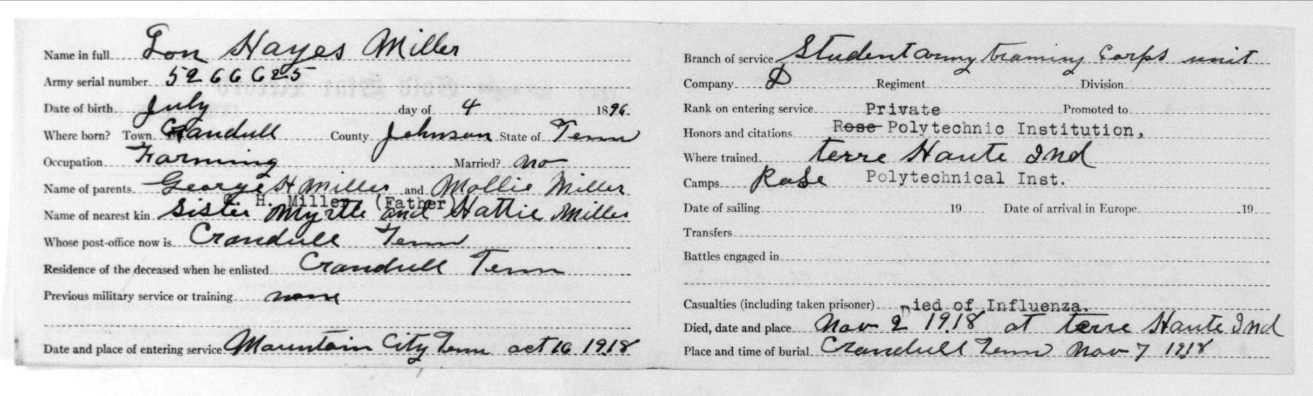 Name in full Lon Hayes Miller
Army serial number. 5266625
Date of birth. July day of 4 1896.
Where born? Town. Crandull County Johnson State of Tenn
Occupation Farming Married? no
Name of parents. George H Miller and Mollie Miller
H. Miller (Father
Name of nearest kin Sister Myrtle and Hattie Miller
Whose post-office now is Crandull Tenn
Residence of the deceased when he enlisted Crandull Tenn
Previous military service or training none
Date and place of entering service Mountain City Tenn oct 16 1918
Branch of service Student army training Corps unit
Company D Regiment Division
Rank on entering service Private Promoted to
Honors and citations Rose Polytechnic Institution,
Where trained terre Haute Ind
Camps Rose Polytechnical Inst.
Date of sailing 19 Date of arrival in Europe 19
Transfers
Battles engaged in
Casualties (including taken prisoner) Died of Influenza.
Died, date and place Nov 2 1918 at terre Haute Ind
Place and time of burial Crandull Tenn Nov 7 1918